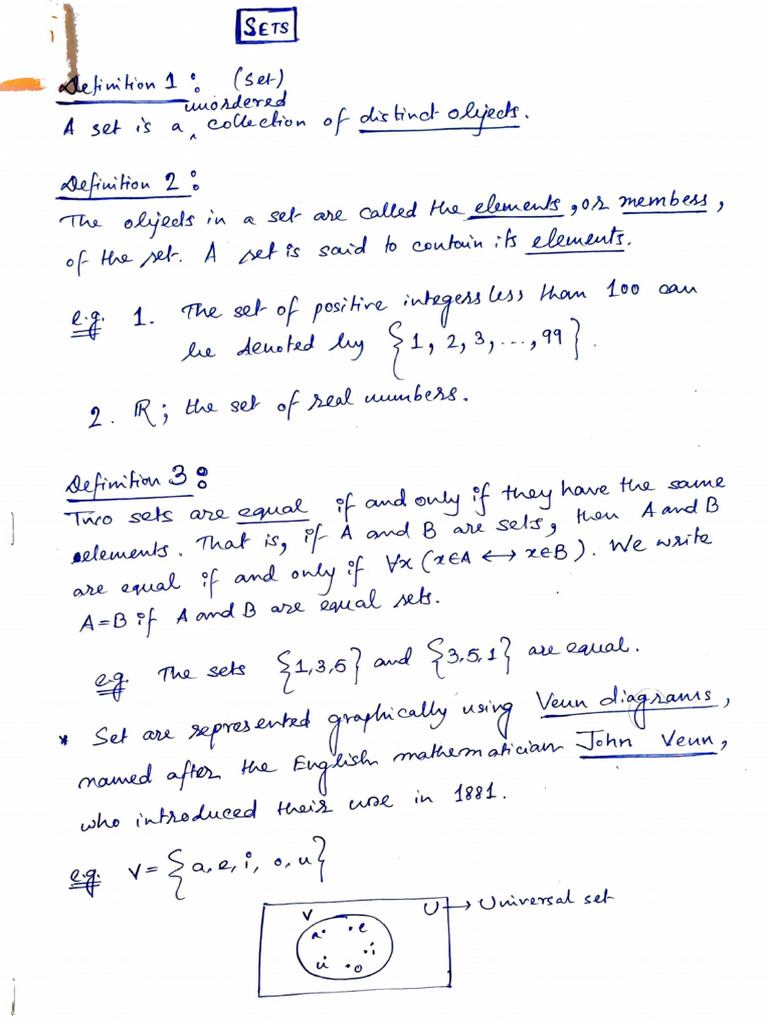 SETS
Definition 1 : (Set)
A set is a unordered collection of distinct objects.
Definition 2 :
The objects in a set are called the elements, or members,
of the set. A set is said to contain its elements.
e.g. 1. The set of positive integers less than 100 can
be denoted by {1, 2, 3, ..., 99}.
2. ℝ; the set of real numbers.
Definition 3 :
Two sets are equal if and only if they have the same
elements. That is, if A and B are sets, then A and B
are equal if and only if ∀x (x∈A ↔ x∈B). We write
A=B if A and B are equal sets.
e.g. The sets {1,3,5} and {3,5,1} are equal.
* Set are represented graphically using Venn diagrams,
named after the English mathematician John Venn,
who introduced their use in 1881.
e.g. V = {a, e, i, o, u}
V U → Universal set
a e
i
u o